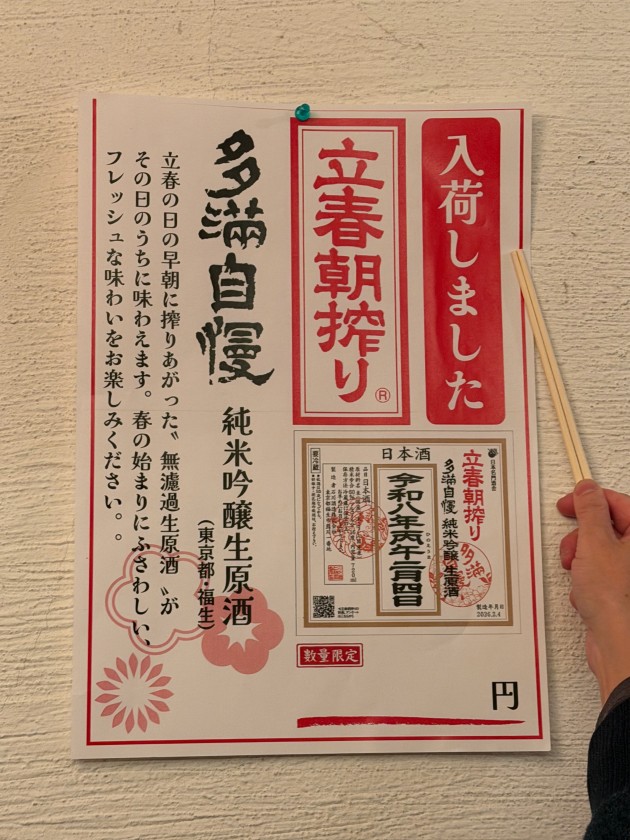 入荷しました
立春朝搾り®
多満自慢
純米吟醸生原酒
(東京都・福生)
立春の日の早朝に搾りあがった〝無濾過生原酒〟が
その日のうちに味わえます。春の始まりにふさわしい、
フレッシュな味わいをお楽しみください。。
日本酒
日本名門酒会
立春朝搾り
多満自慢 純米吟醸 生原酒
多満
令和八年丙午二月四日
製造年月日
2026.2.4
要冷蔵
品目 日本酒
数量限定
円